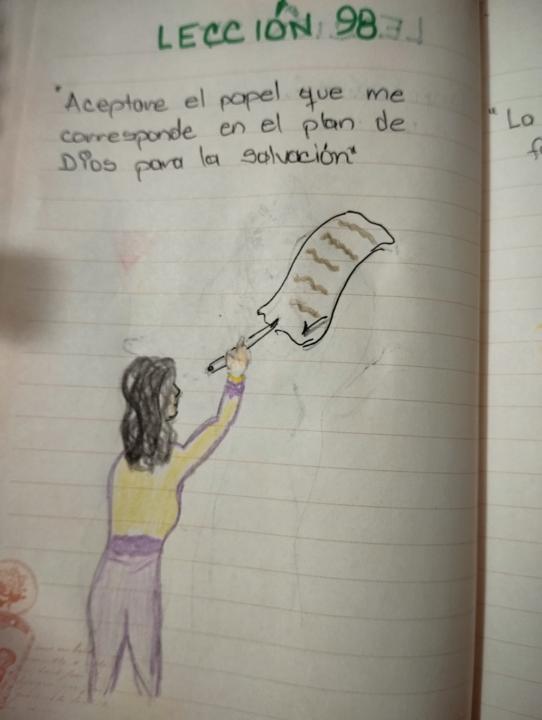 LECCIÓN 98
"Aceptare el papel que me
corresponde en el plan de
Dios para la salvación"
" Lo